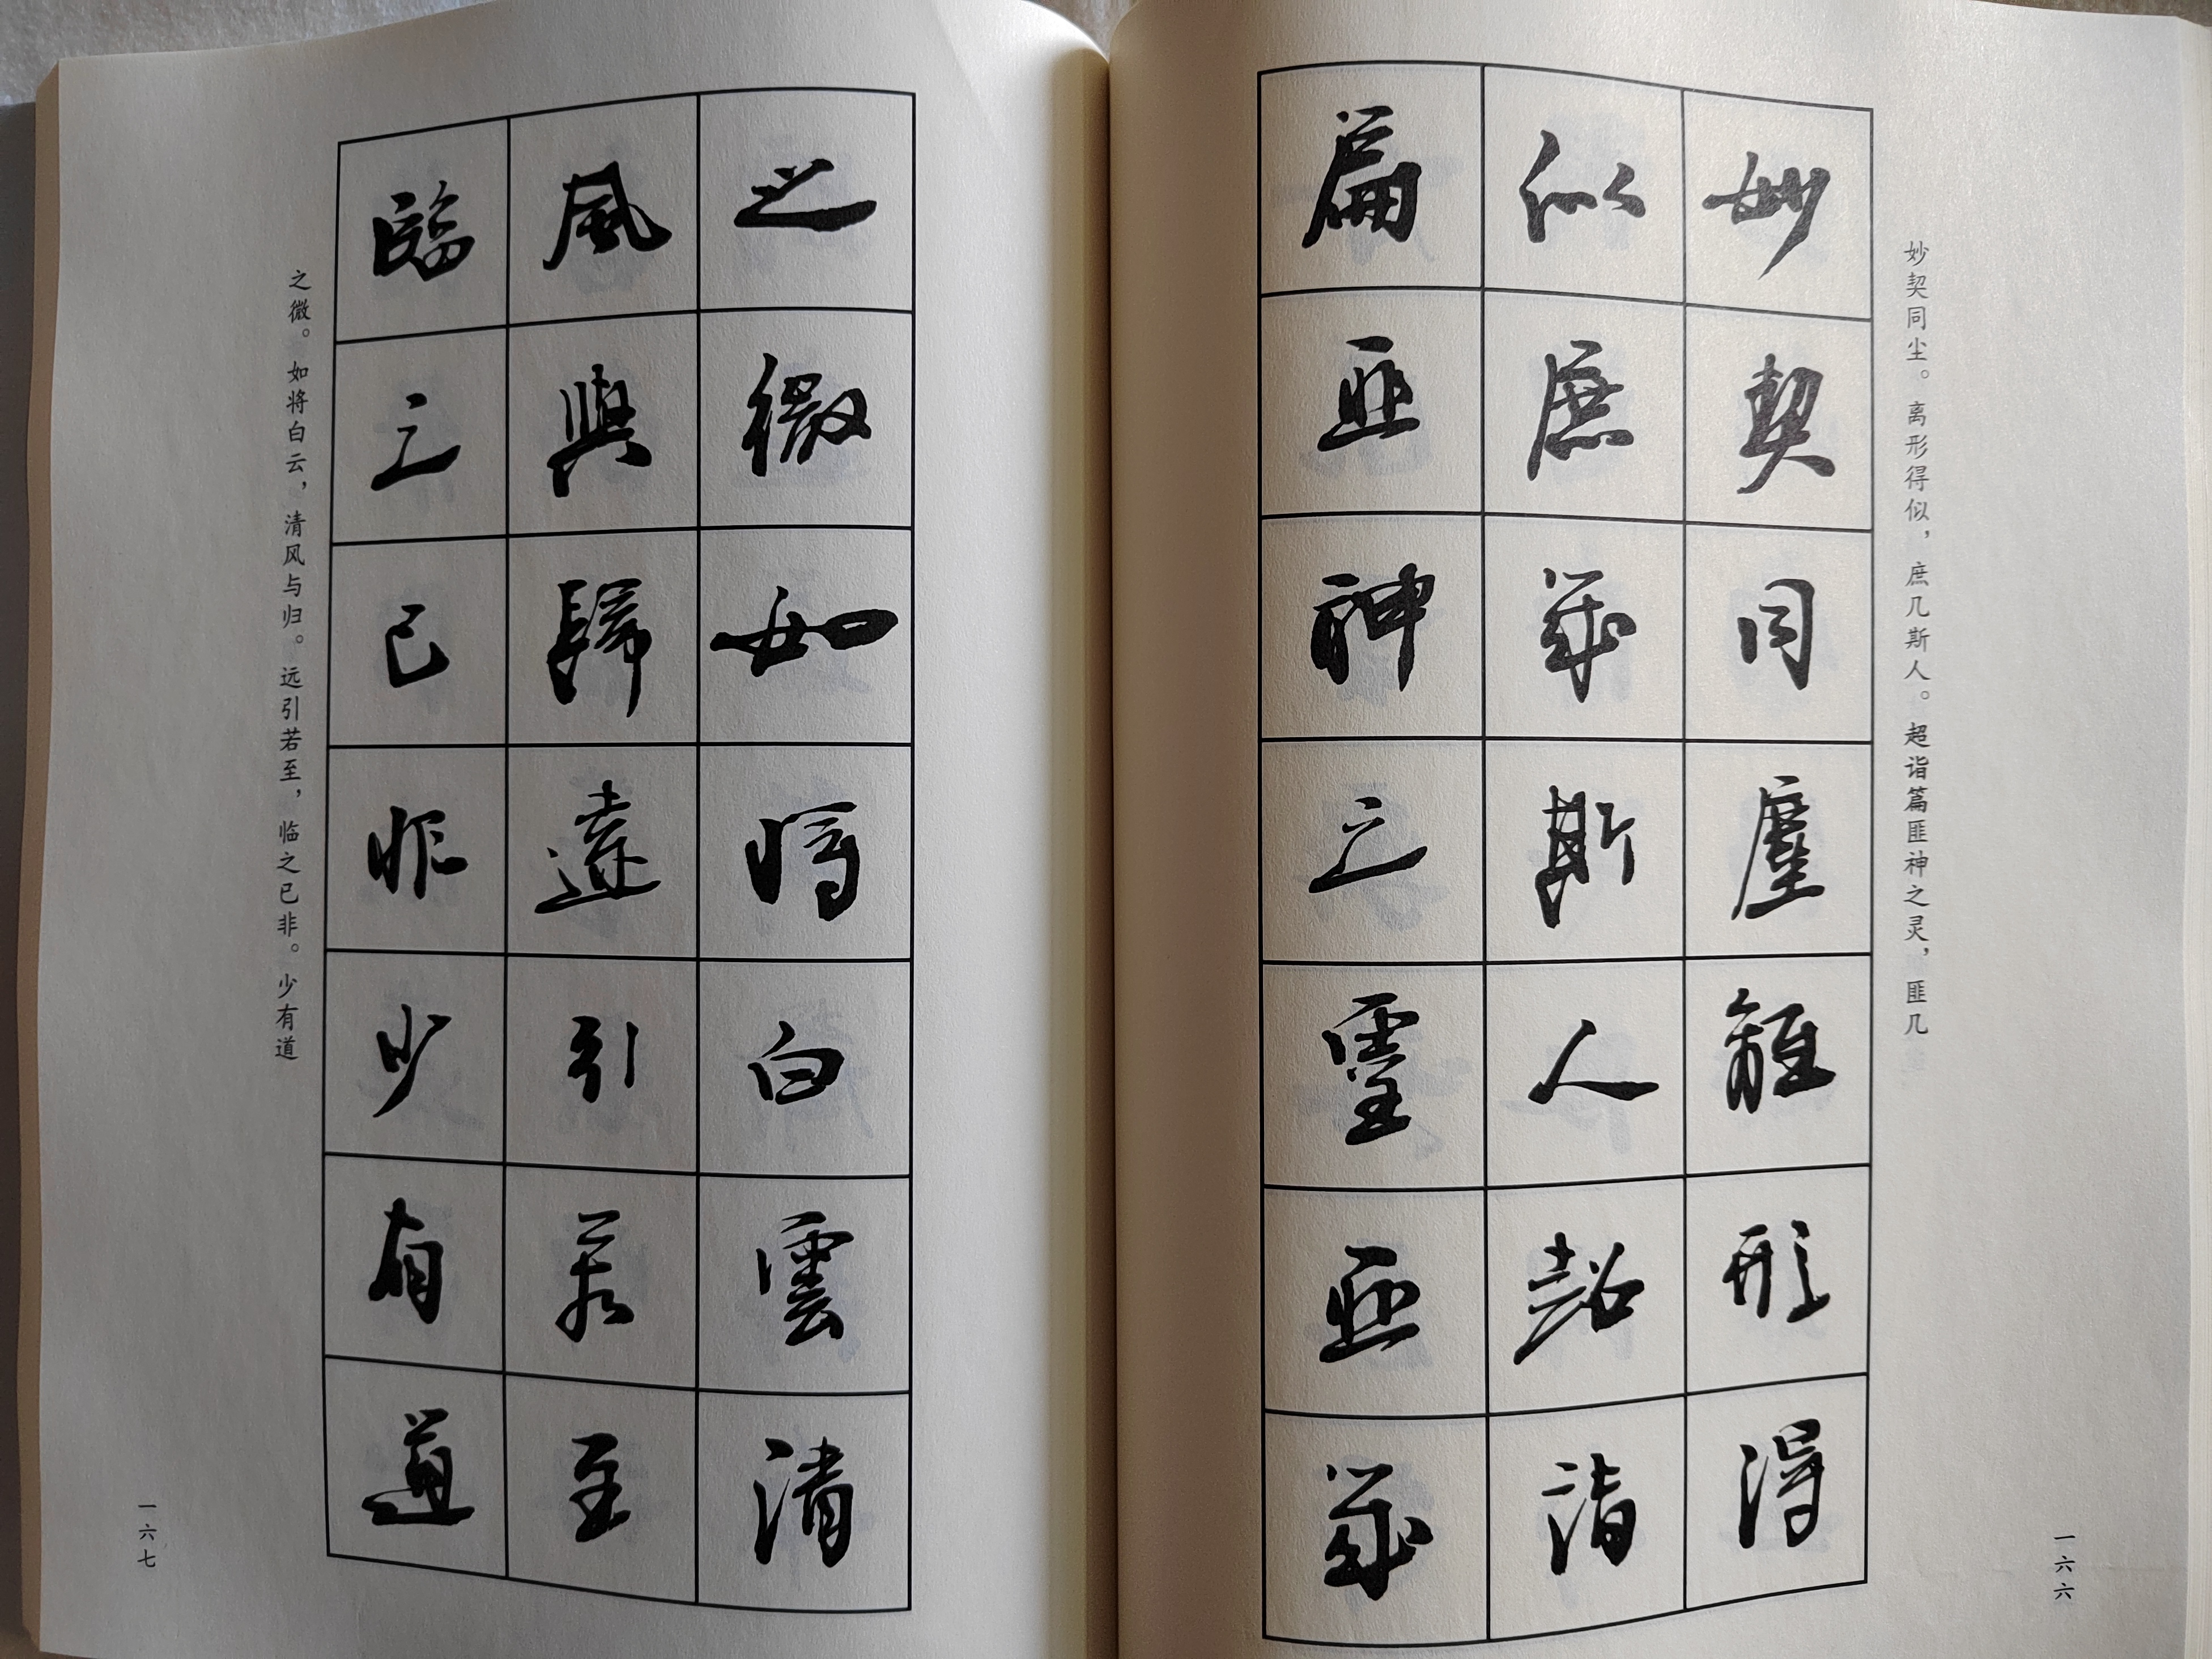 妙契同尘。离形得似，庶几斯人。超诣篇匪神之灵，匪几
妙契同塵離形得
似庶幾斯人超詣
篇匪神之靈匪幾
一六六
之微如將白雲清
風與歸遠引若至
臨之已非少有道
之微。如将白云，清风与归。远引若至，临之已非。少有道
一六七